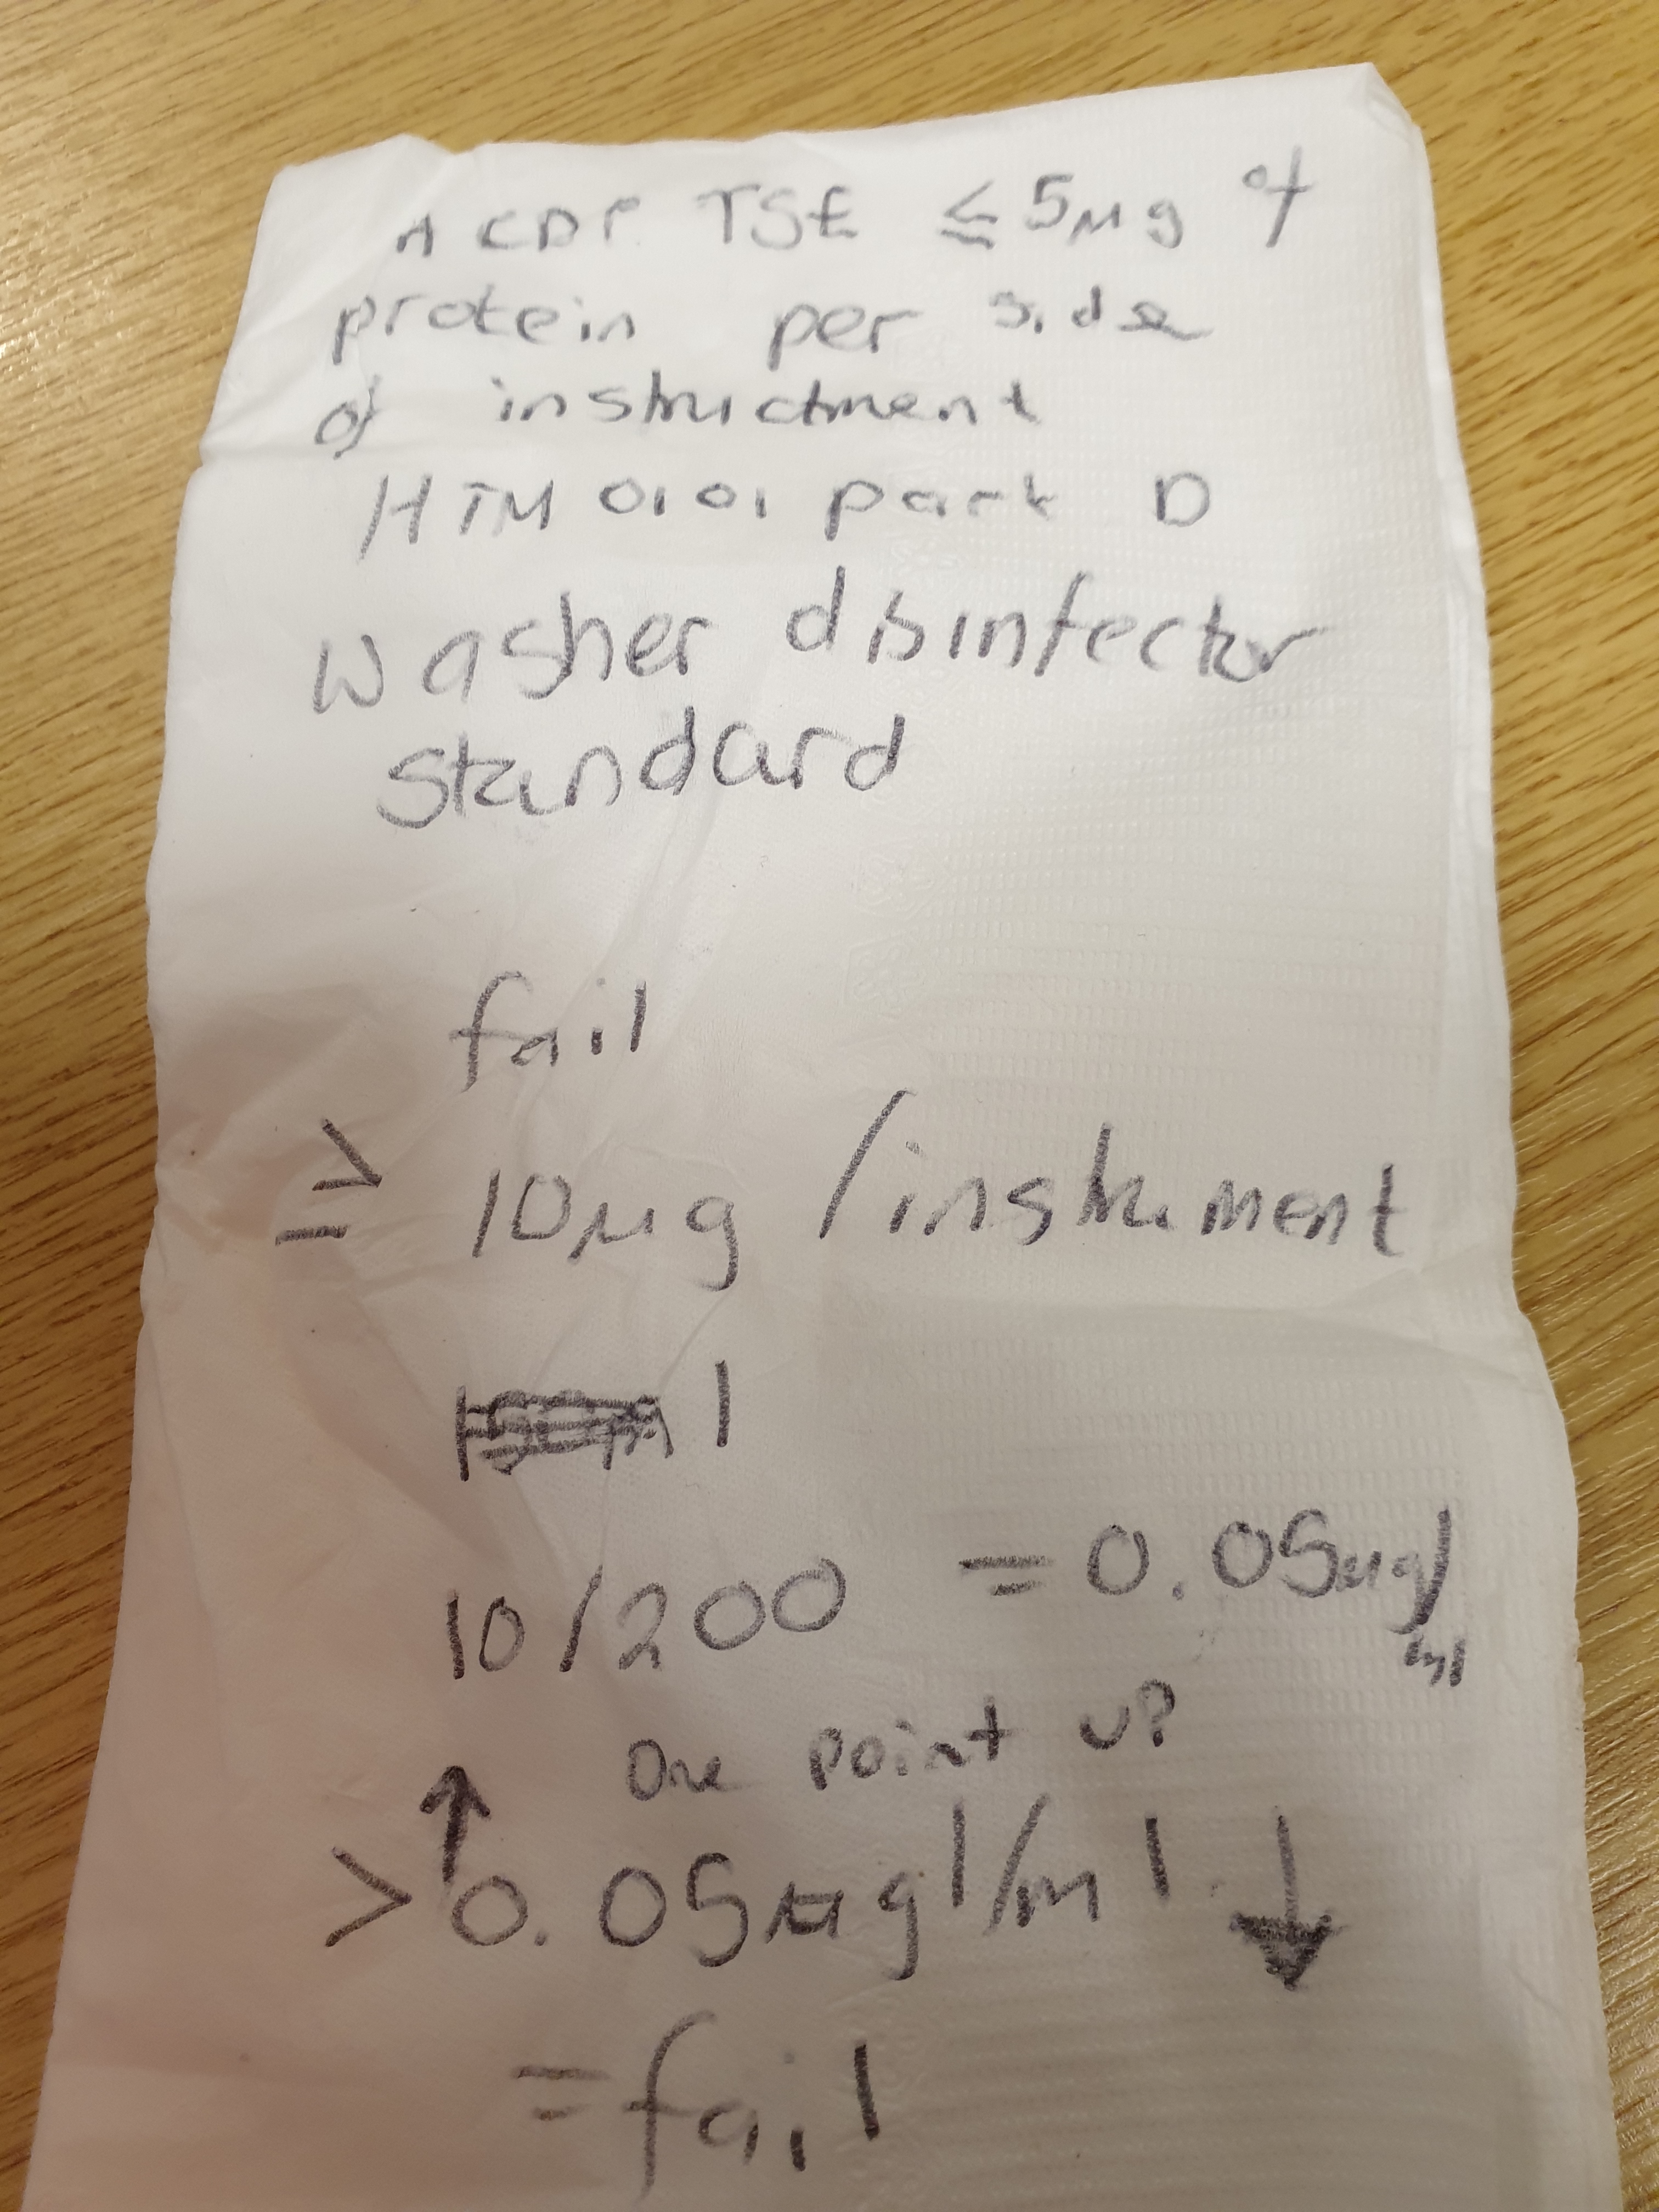 ACDP TSE ≤ 5μg of
protein per side
of instructment
HTM 0101 part D
washer disinfector
standard
fail
≥ 10μg / instrument
1
10/200 = 0.05μg/
ml
One point u?
> 0.05μg/ml
= fail